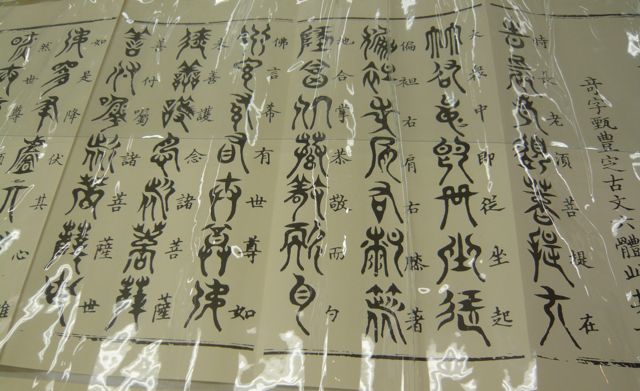 奇字甄豐定古文六體此其
時長老須菩提在
大衆中即從坐起
偏袒右肩右膝著
地合掌恭敬而白
佛言希有世尊如
來善護念諸菩薩
善付囑諸菩薩世
如是降伏其心唯
然世尊